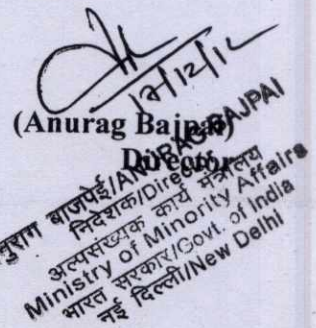 17/12/12
(Anurag Bajpai)
Director
अनुराग बाजपेई/ANURAG BAJPAI
निदेशक/Director
अल्पसंख्यक कार्य मंत्रालय
Ministry of Minority Affairs
भारत सरकार/Govt. of India
नई दिल्ली/New Delhi